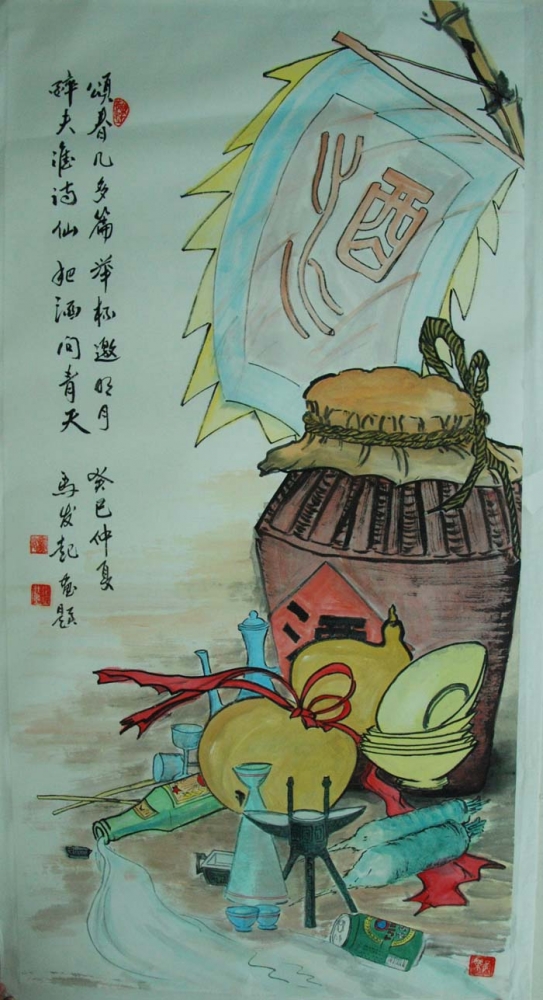 酒
頌春几多篇 举杯邀明月
醉夫谁诗仙 把酒问青天
癸巳仲夏
马发起画题
酒